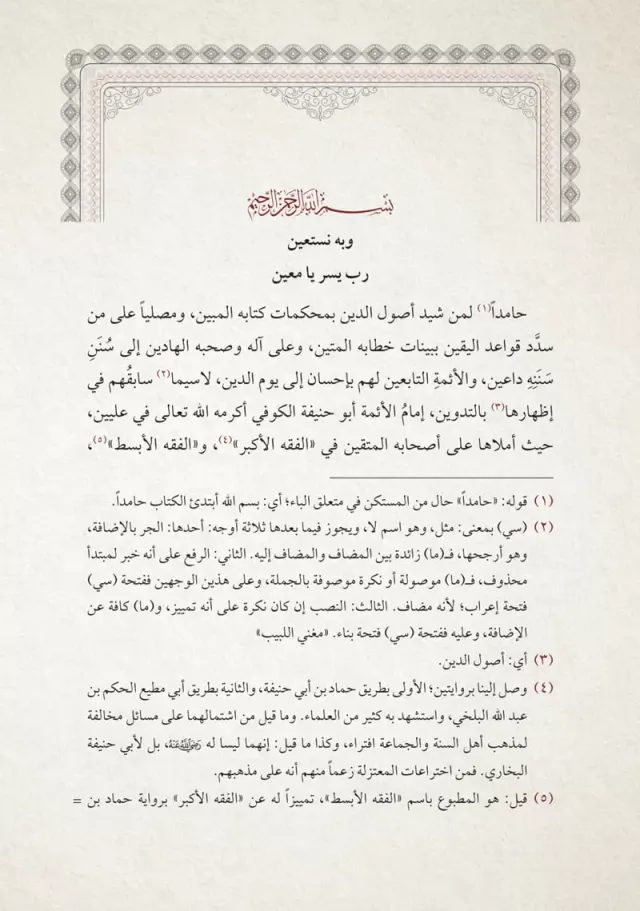 بسم الله الرحمن الرحيم
وبه نستعين
رب يسر يا معين
حامداً(١) لمن شيد أصول الدين بمحكمات كتابه المبين، ومصلياً على من
سدَّد قواعد اليقين ببينات خطابه المتين، وعلى آله وصحبه الهادين إلى سُنَنِ
سَنَنِهِ داعين، والأئمةِ التابعين لهم بإحسان إلى يوم الدين، لاسيما(٢) سابقُهم في
إظهارها(٣) بالتدوين، إمامُ الأئمة أبو حنيفة الكوفي أكرمه الله تعالى في عليين،
حيث أملاها على أصحابه المتقين في «الفقه الأكبر»(٤)، و«الفقه الأبسط»(٥)،
(١) قوله: «حامداً» حال من المستكن في متعلق الباء؛ أي: بسم الله أبتدئ الكتاب حامداً.
(٢) (سي) بمعنى: مثل، وهو اسم لا، ويجوز فيما بعدها ثلاثة أوجه: أحدها: الجر بالإضافة،
وهو أرجحها، فـ(ما) زائدة بين المضاف والمضاف إليه. الثاني: الرفع على أنه خبر لمبتدأ
محذوف، فـ(ما) موصولة أو نكرة موصوفة بالجملة، وعلى هذين الوجهين ففتحة (سي)
فتحة إعراب؛ لأنه مضاف. الثالث: النصب إن كان نكرة على أنه تمييز، و(ما) كافة عن
الإضافة، وعليه ففتحة (سي) فتحة بناء. «مغني اللبيب»
(٣) أي: أصول الدين.
(٤) وصل إلينا بروايتين؛ الأولى بطريق حماد بن أبي حنيفة، والثانية بطريق أبي مطيع الحكم بن
عبد الله البلخي، واستشهد به كثير من العلماء. وما قيل من اشتمالهما على مسائل مخالفة
لمذهب أهل السنة والجماعة افتراء، وكذا ما قيل: إنهما ليسا له رضي الله عنه، بل لأبي حنيفة
البخاري. فمن اختراعات المعتزلة زعماً منهم أنه على مذهبهم.
(٥) قيل: هو المطبوع باسم «الفقه الأبسط»، تمييزاً له عن «الفقه الأكبر» برواية حماد بن =